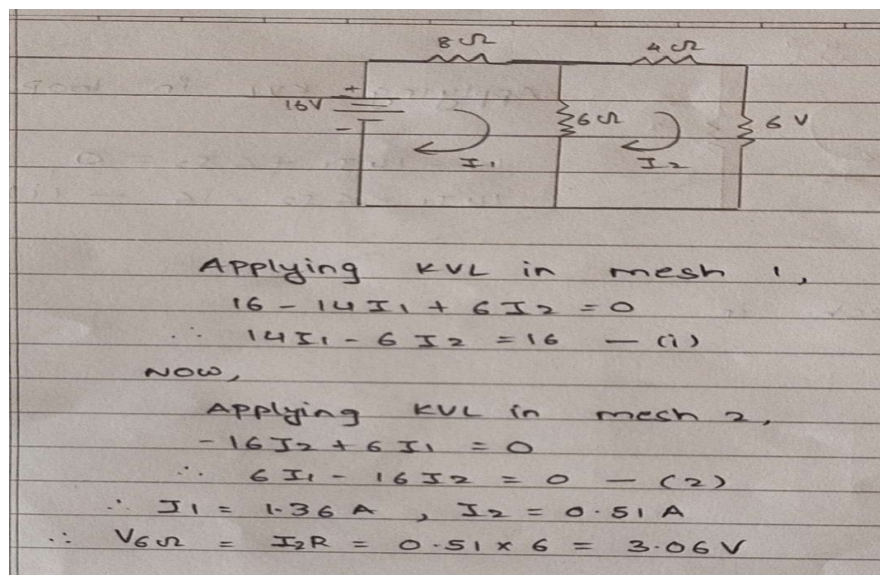 8 Ω 4 Ω
16V + - 6 Ω 6 V
I1 I2
Applying KVL in mesh 1,
16 - 14 I1 + 6 I2 = 0
∴ 14 I1 - 6 I2 = 16 — (i)
NOW,
Applying KVL in mesh 2,
- 16 I2 + 6 I1 = 0
∴ 6 I1 - 16 I2 = 0 — (2)
∴ I1 = 1.36 A , I2 = 0.51 A
∴ V6Ω = I2R = 0.51 × 6 = 3.06 V